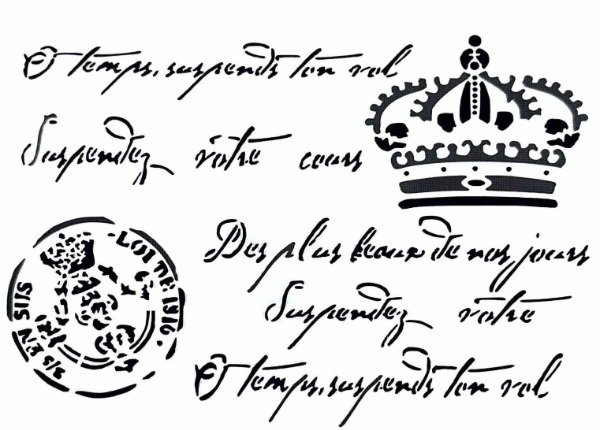 O temps, suspends ton vol
Suspendez votre cours
Des plus beaux de nos jours
Suspendez votre
O temps, suspends ton vol
LOI DE 1916.
S/S EN SUS